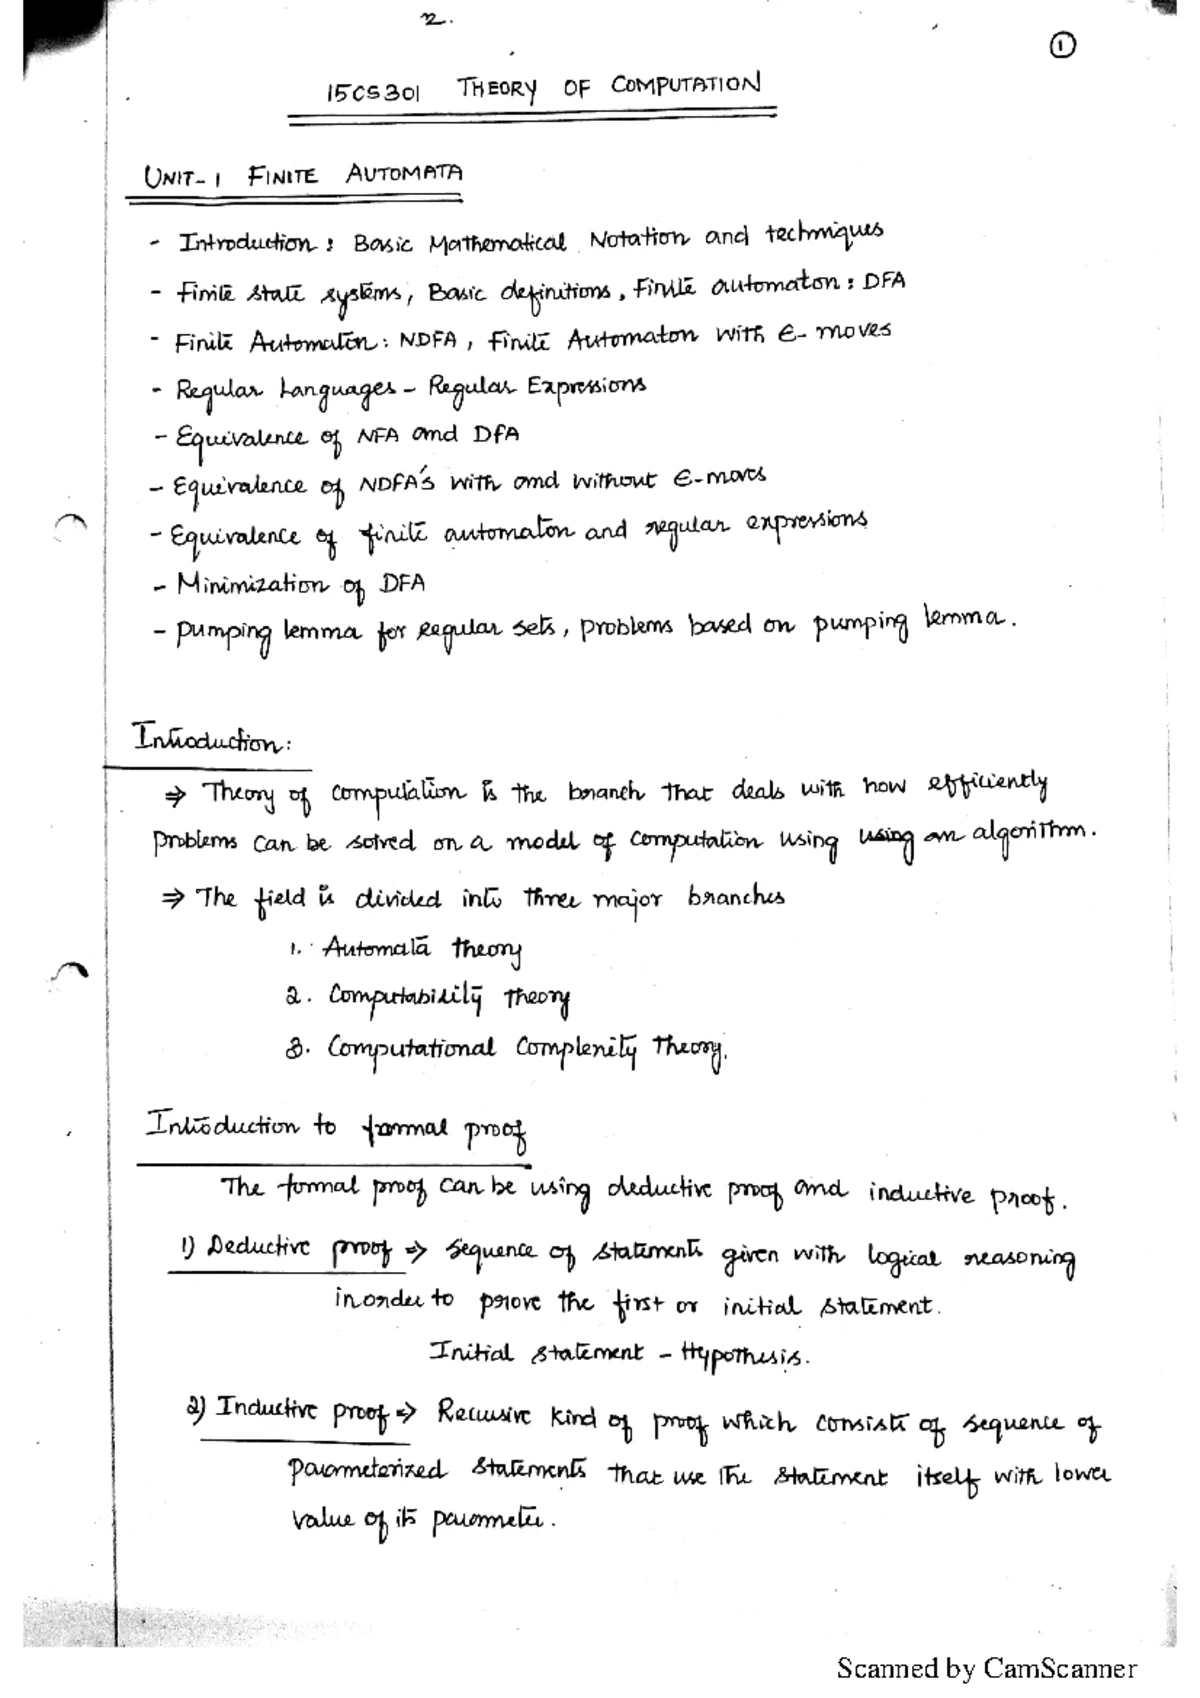 2.
1
15CS301 THEORY OF COMPUTATION
UNIT-1 FINITE AUTOMATA
- Introduction: Basic Mathematical Notation and techniques
- Finite state systems, Basic definitions, Finite automaton: DFA
- Finite Automaton: NDFA, Finite Automaton with ε- moves
- Regular Languages - Regular Expressions
- Equivalence of NFA and DFA
- Equivalence of NDFA's with and without ε-moves
- Equivalence of finite automaton and regular expressions
- Minimization of DFA
- pumping lemma for regular sets, problems based on pumping lemma.
Introduction:
⇒ Theory of computation is the branch that deals with how efficiently
problems can be solved on a model of computation using using an algorithm.
⇒ The field is divided into three major branches
1. Automata theory
2. Computability theory
3. Computational Complexity theory.
Introduction to formal proof
The formal proof can be using deductive proof and inductive proof.
1) Deductive proof ⇒ sequence of statements given with logical reasoning
inorder to prove the first or initial statement.
Initial statement - Hypothesis.
2) Inductive proof ⇒ Recursive kind of proof which consists of sequence of
parameterized statements that use the statement itself with lower
value of its parameter.
Scanned by CamScanner